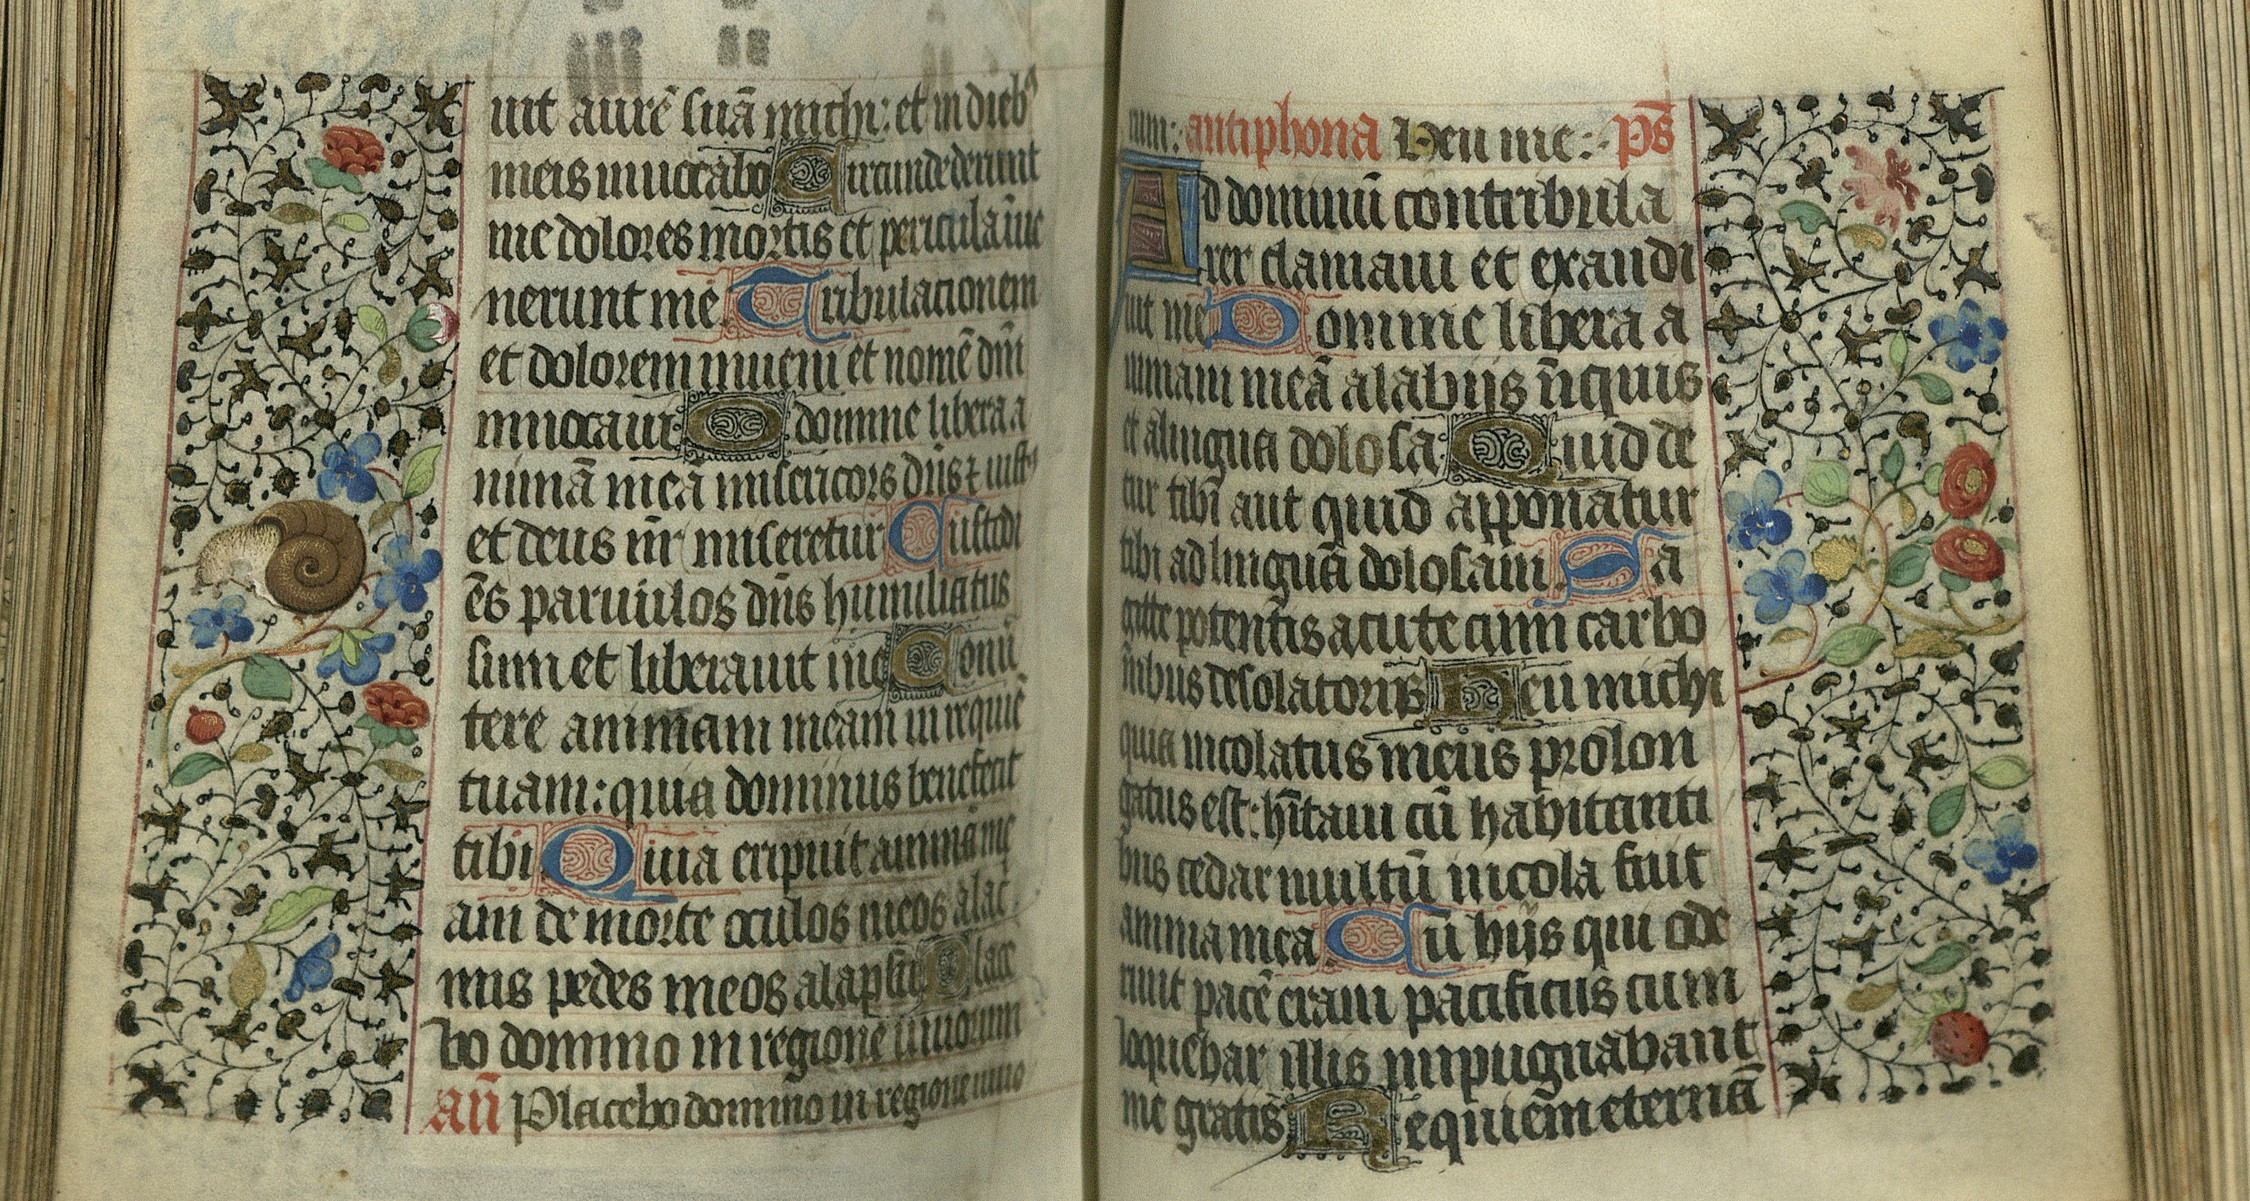 uit aurē suā michi: et in dieb⁹
meis inuocabo Circundederunt
me dolores mortis et pericula īue
nerunt me Tribulationem
et dolorem inueni et nomē dn̄i
inuocaui O domine libera a
nimā meā misericors dn̄s ⁊ iust⁹
et deus nr̄ miseretur Custodi
ēs paruulos dn̄s humiliatus
sum et liberauit me Conū
tere animam meam in requiē
tuam: quia dominus benefecit
tibi Quia eripuit animā me
am de morte oculos meos a lac̄
mis pedes meos a lapsu Place
bo domino in regione uiuorum
an̄ Placebo domino in regione uiuo
rum: antiphona Heu me: ps̄
Ad dominū cum tribula
rer clamaui et exaudi
uit me Domine libera a
nimam meā a labijs īiquis
et a lingua dolosa Quid de
tur tibi aut quid apponatur
tibi ad linguā dolosam Sa
gitte potentis acute cum carbo
nibus desolatorijs Heu michi
quia incolatus meus prolon
gatus est: hītaui cū habitanti
bus cedar multū incola fuit
anima mea Cū hijs qui ode
runt pacē eram pacificus cum
loquebar illis inpugnabant
me gratis Requiem eternā